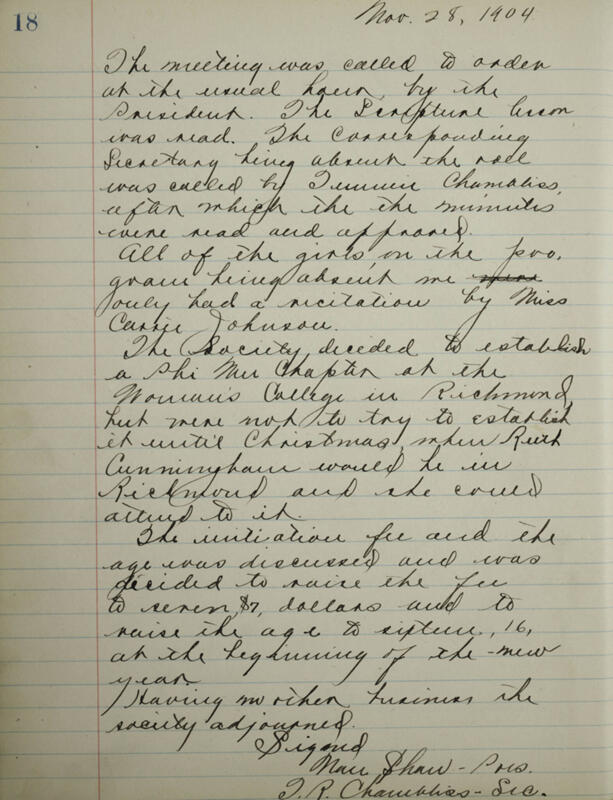 18
Nov. 28, 1904
The meeting was called to order
at the usual hour, by the
President. The Scripture lesson
was read. The Corresponding
Secretary being absent the roll
was called by Chambliss,
after which the the minutes
were read and approved.
All of the girls, on the pro-
gram being absent, we were
only had a recitation by Miss
Carrie Johnson.
The Society decided to establish
a Phi Mu Chapter at the
Woman's College in Richmond,
but were not to try to establish
it until Christmas, when Ruth
Cunningham would be in
Richmond and she could
attend to it.
The initiation fee and the
age was discussed and was
decided to raise the fee
to seven, $7, dollars and to
raise the age to sixteen, 16,
at the beginning of the new
year.
Having no other business the
society adjourned.
Signed
Shaw - Pres.
T. R. Chambliss - Sec.